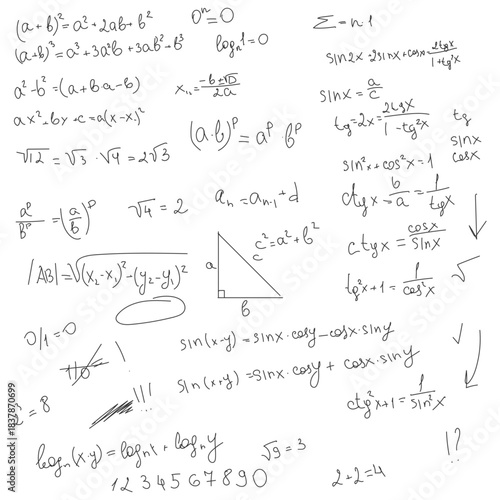 (a+b)²=a²+2ab+b²
(a+b)³=a³+3a²b+3ab²+b³
0ⁿ=0
logₙ1=0
Σ=n·1
a²-b²=(a+b a-b)
sin2x=2sinx·cosx=2tgx/1+tg²x
ax²+bx+c=a(x-x₁)²
x₁,₂=-b±√D/2a
sinx=a/c
tg=2x=2tgx/1-tg²x
tg
sinx
cosx
(a·b)ᴾ=aᴾ bᴾ
√12=√3·√4=2√3
sin²x+cos²x=1
ctgx=b/a=1/tgx
aᴾ/Bᴾ=(a/b)ᴾ
√4=2
aₙ=aₙ₋₁+d
c²=a²+b²
c
a
b
ctgx=cosx/sinx
|AB|=√(x₂-x₁)²-(y₂-y₁)²
tg²x+1=1/cos²x
√
0/1=0
!
1/0
sin(x-y)=sinx·cosy-cosx·siny
sin(x+y)=sinx·cosy+cosx·siny
!!!
ctg²x+1=1/sin²x
=8
logₙ(x·y)=logₙx+logₙy
√9=3
!?
1 2 3 4 5 6 7 8 9 0
2+2=4
Adobe Stock | #1837870699